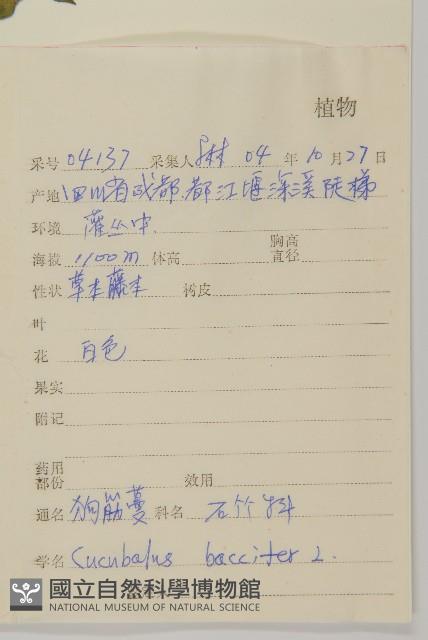 植物
采号 04137 采集人 林 04 年 10 月 27 日
产地 四川省成都 都江堰 深溪陡梯
环境 灌丛中
胸高
海拔 1100m 体高 直径
性状 草本藤本 树皮
叶
花 白色
果实
附记
药用
部份 效用
通名 狗筋蔓 科名 石竹科
学名 Cucubalus baccifer L.
國立自然科學博物館
NATIONAL MUSEUM OF NATURAL SCIENCE